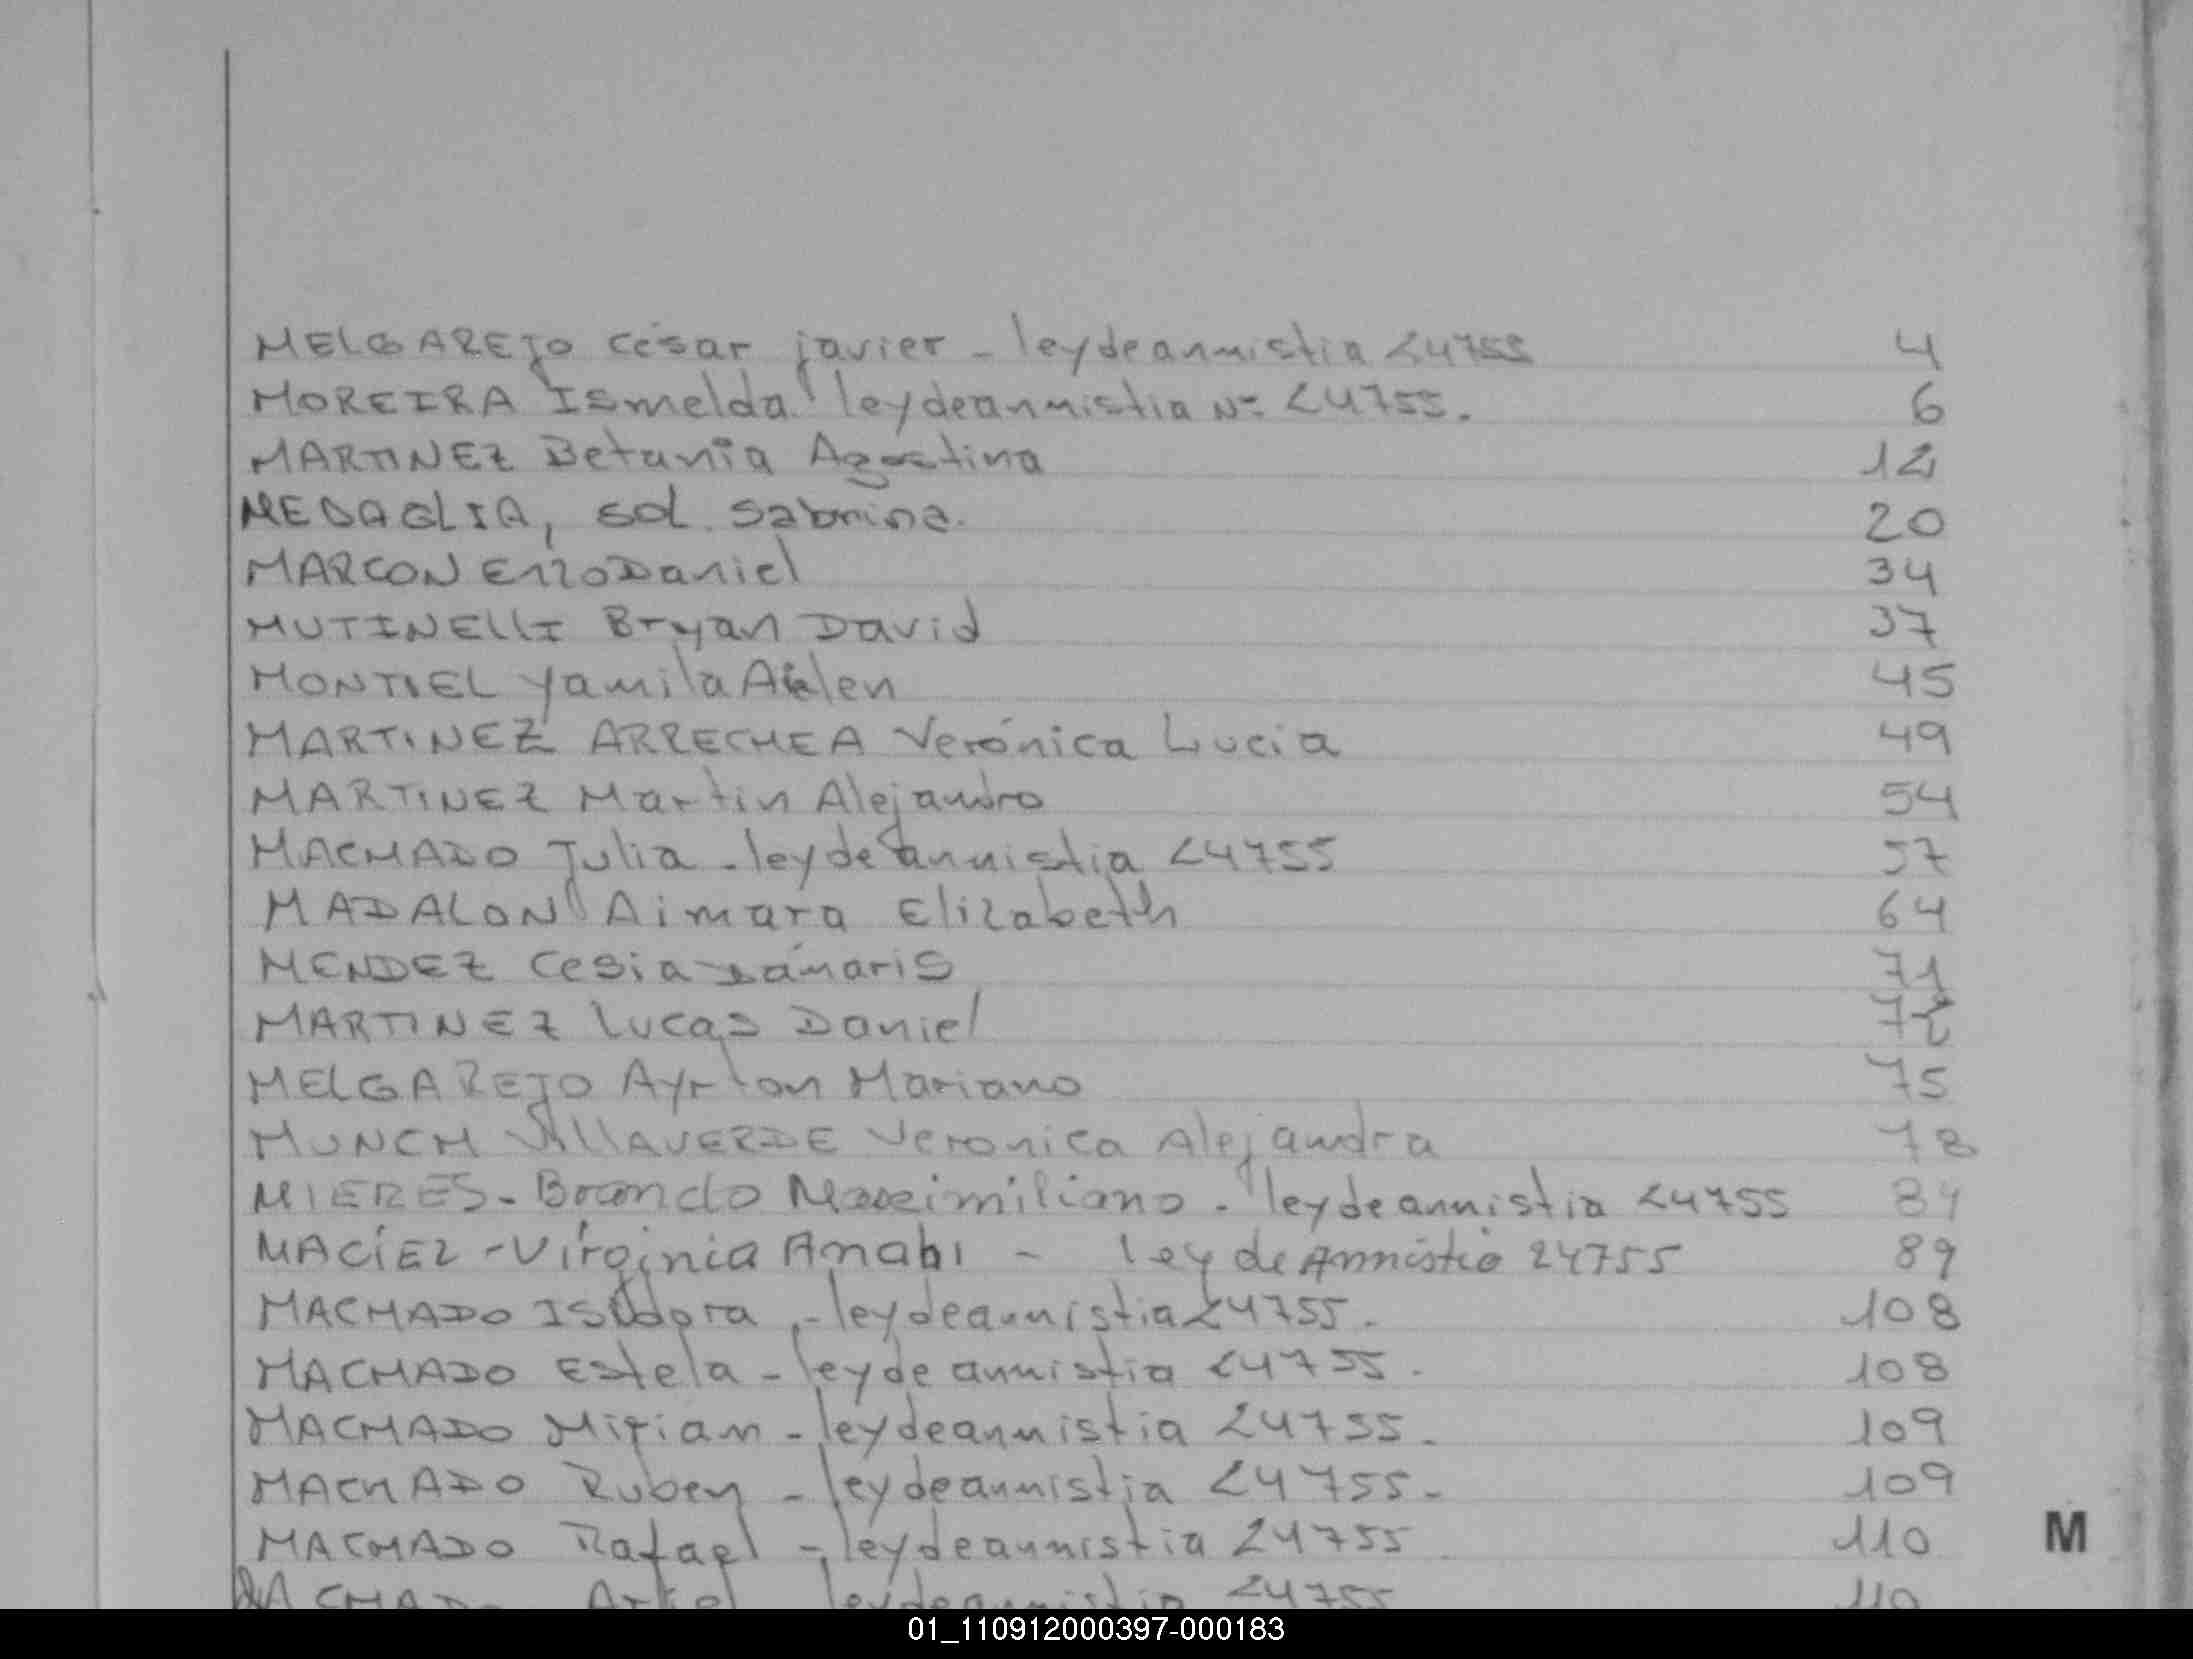 MELGAREJO César javier - ley de amnistia 24755 4
MOREIRA Ismelda ley de amnistia Nº 24755. 6
MARTINEZ Betania Agostina 12
MEDAGLIA, sol sabrina. 20
MARCON Enzo Daniel 34
MUTINELLI Bryan David 37
MONTIEL Yamila Ailen 45
MARTINEZ ARRECHEA Verónica Lucia 49
MARTINEZ Martin Alejandro 54
MACHADO Julia - ley de amnistia 24755 57
MADALON Aimara Elizabeth 64
MENDEZ Cesia Dámaris 71
MARTINEZ Lucas Daniel
MELGAREJO Ayrton Mariano 75
MUNCH VIllAVERDE Veronica Alejandra 78
MIERES - Brando Maximiliano - ley de amnistia 24755 84
MACÍEL - Virginia Anahi - ley de Amnistia 24755 89
MACHADO Isidora - ley de amnistia 24755. 108
MACHADO Estela - ley de amnistia 24755. 108
MACHADO Mirian - ley de amnistia 24755. 109
MACHADO Ruben - ley de amnistia 24755. 109
MACHADO Rafael - ley de amnistia 24755 110
M
MACHADO ley de amnistia 24755 110
01_110912000397-000183